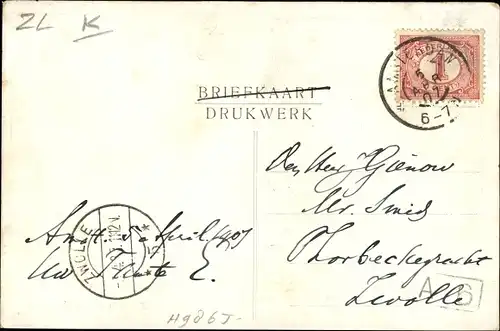 ZL K
BRIEFKAART
DRUKWERK
AMSTERDAM
1
6-7
den Heer
Mr. Smid
Thorbeckegracht
Zwolle
Amst. 5 April 1907
Uw Tante E.
ZWOLLE
A 6
H986J-